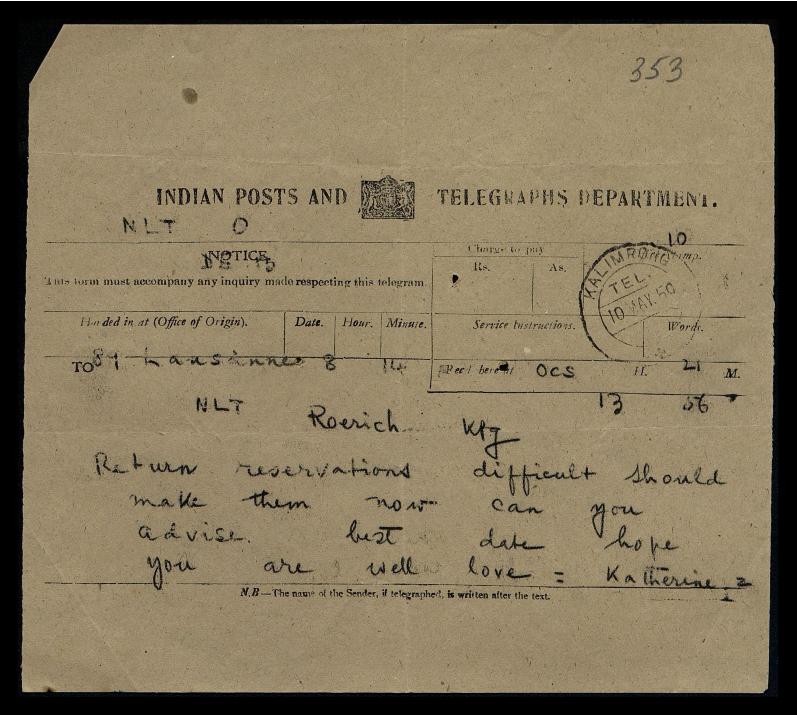 353
INDIAN POSTS AND TELEGRAPHS DEPARTMENT.
NLT O
10
NOTICE
This form must accompany any inquiry made respecting this telegram.
Charge to pay
Rs. As.
KALIMPONG
TEL.
10 MAY. 50
Handed in at (Office of Origin). Date. Hour. Minute. Service Instructions. Words.
TO Lausanne 8 14 Rec'd here at OCS H. 21 M.
13 56
NLT Roerich Kpg
Return reservations difficult should
make them now can you
advise. best date hope
you are well love = Katherine =
N.B—The name of the Sender, if telegraphed, is written after the text.